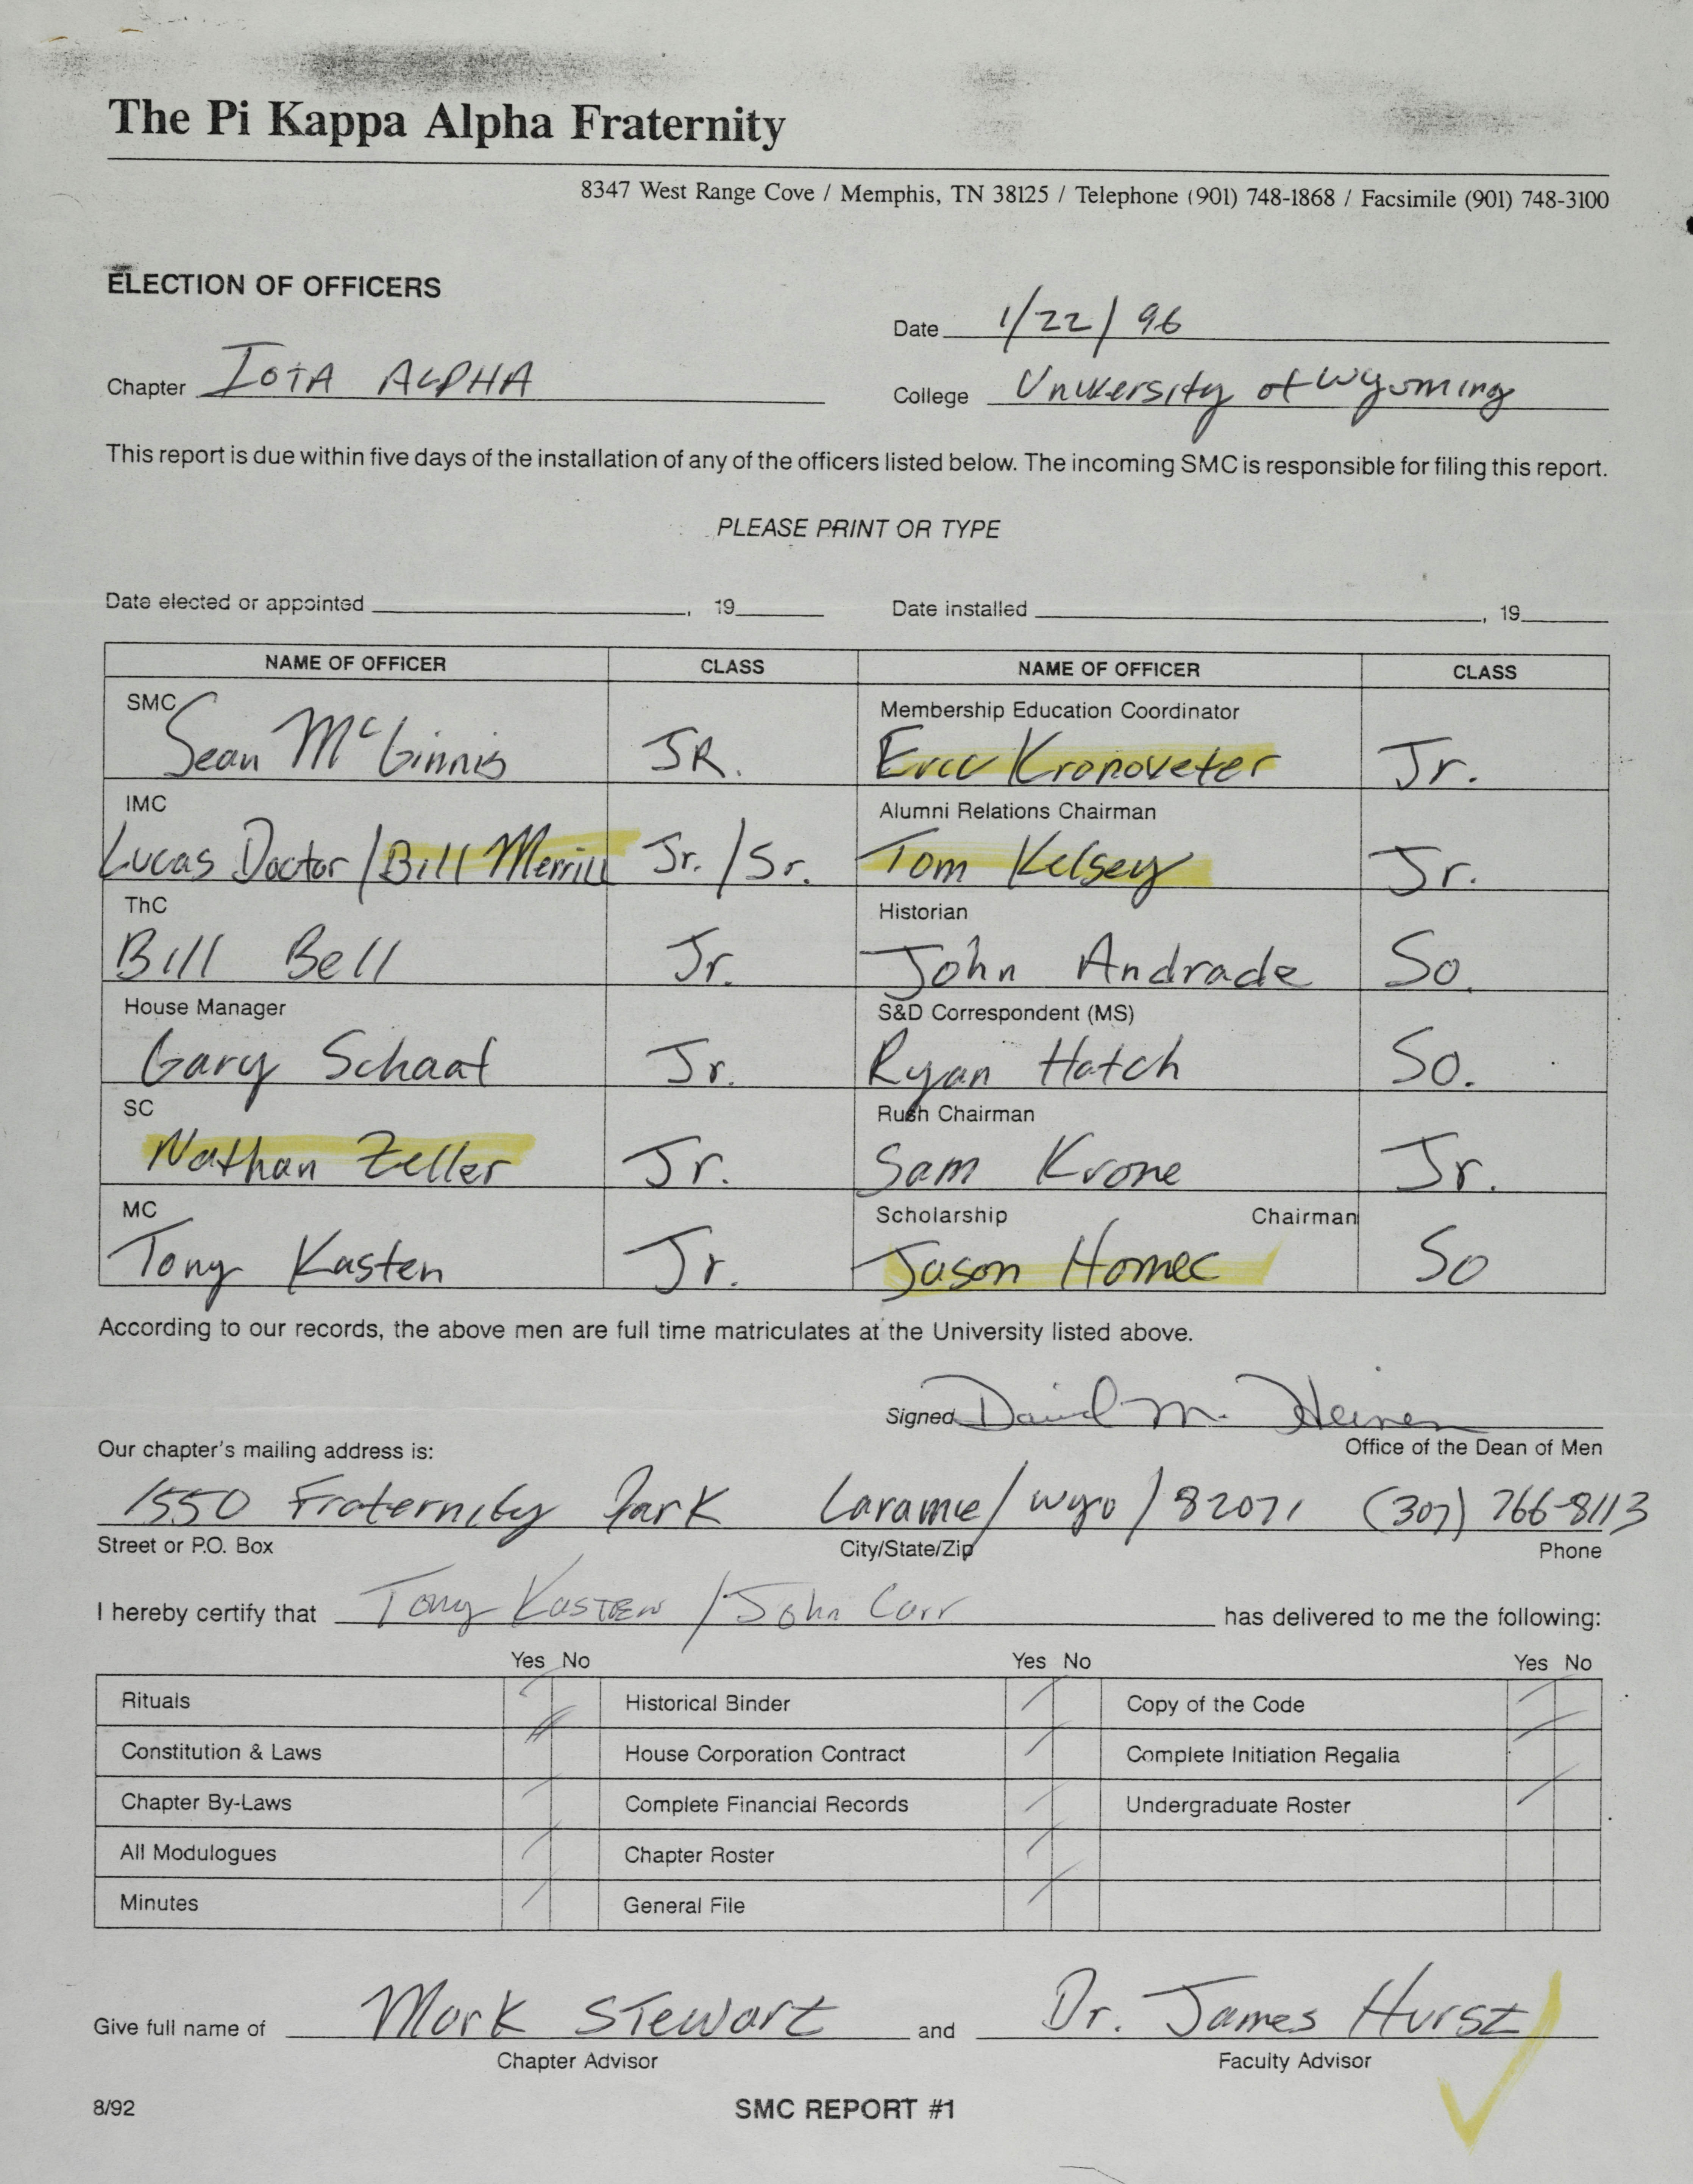 The Pi Kappa Alpha Fraternity
8347 West Range Cove / Memphis, TN 38125 / Telephone (901) 748-1868 / Facsimile (901) 748-3100
ELECTION OF OFFICERS
Date 1/22/96
Chapter IOTA ALPHA College University of Wyoming
This report is due within five days of the installation of any of the officers listed below. The incoming SMC is responsible for filing this report.
PLEASE PRINT OR TYPE
Date elected or appointed , 19 Date installed , 19
NAME OF OFFICER CLASS NAME OF OFFICER CLASS
SMC Membership Education Coordinator
Sean McGinnis JR. Eric Kronoveter Jr.
IMC Alumni Relations Chairman
Lucas Doctor / Bill Merrill Jr. / Sr. Tom Kelsey Jr.
ThC Historian
Bill Bell Jr. John Andrade So.
House Manager S&D Correspondent (MS)
Gary Schaaf Jr. Ryan Hatch So.
SC Rush Chairman
Nathan Zeller Jr. Sam Krone Jr.
MC Scholarship Chairman
Tony Kasten Jr. Jason Homec So
According to our records, the above men are full time matriculates at the University listed above.
Signed David M. Heinen
Office of the Dean of Men
Our chapter's mailing address is:
1550 Fraternity Park Laramie / Wyo / 82071 (307) 766-8113
Street or P.O. Box City/State/Zip Phone
I hereby certify that Tony Kasten / John Carr has delivered to me the following:
Yes No Yes No Yes No
Rituals Historical Binder Copy of the Code
Constitution & Laws House Corporation Contract Complete Initiation Regalia
Chapter By-Laws Complete Financial Records Undergraduate Roster
All Modulogues Chapter Roster
Minutes General File
Give full name of Mark Stewart and Dr. James Hurst
Chapter Advisor Faculty Advisor
8/92 SMC REPORT #1